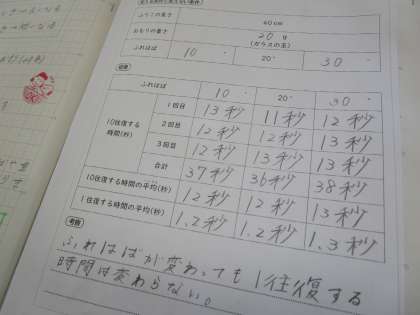 ふりこの長さ 60cm
おもりの重さ 20g
(ガラスの玉)
ふれはば 10° 20° 30°
結果
ふれはば 10° 20° 30°
10往復する時間(秒)
1回目 13秒 11秒 12秒
2回目 12秒 12秒 13秒
3回目 12秒 13秒 13秒
合計 37秒 36秒 38秒
10往復する時間の平均(秒) 12秒 12秒 13秒
1往復する時間の平均(秒) 1.2秒 1.2秒 1.3秒
考察
ふれはばが変わっても1往復する
時間は変わらない。